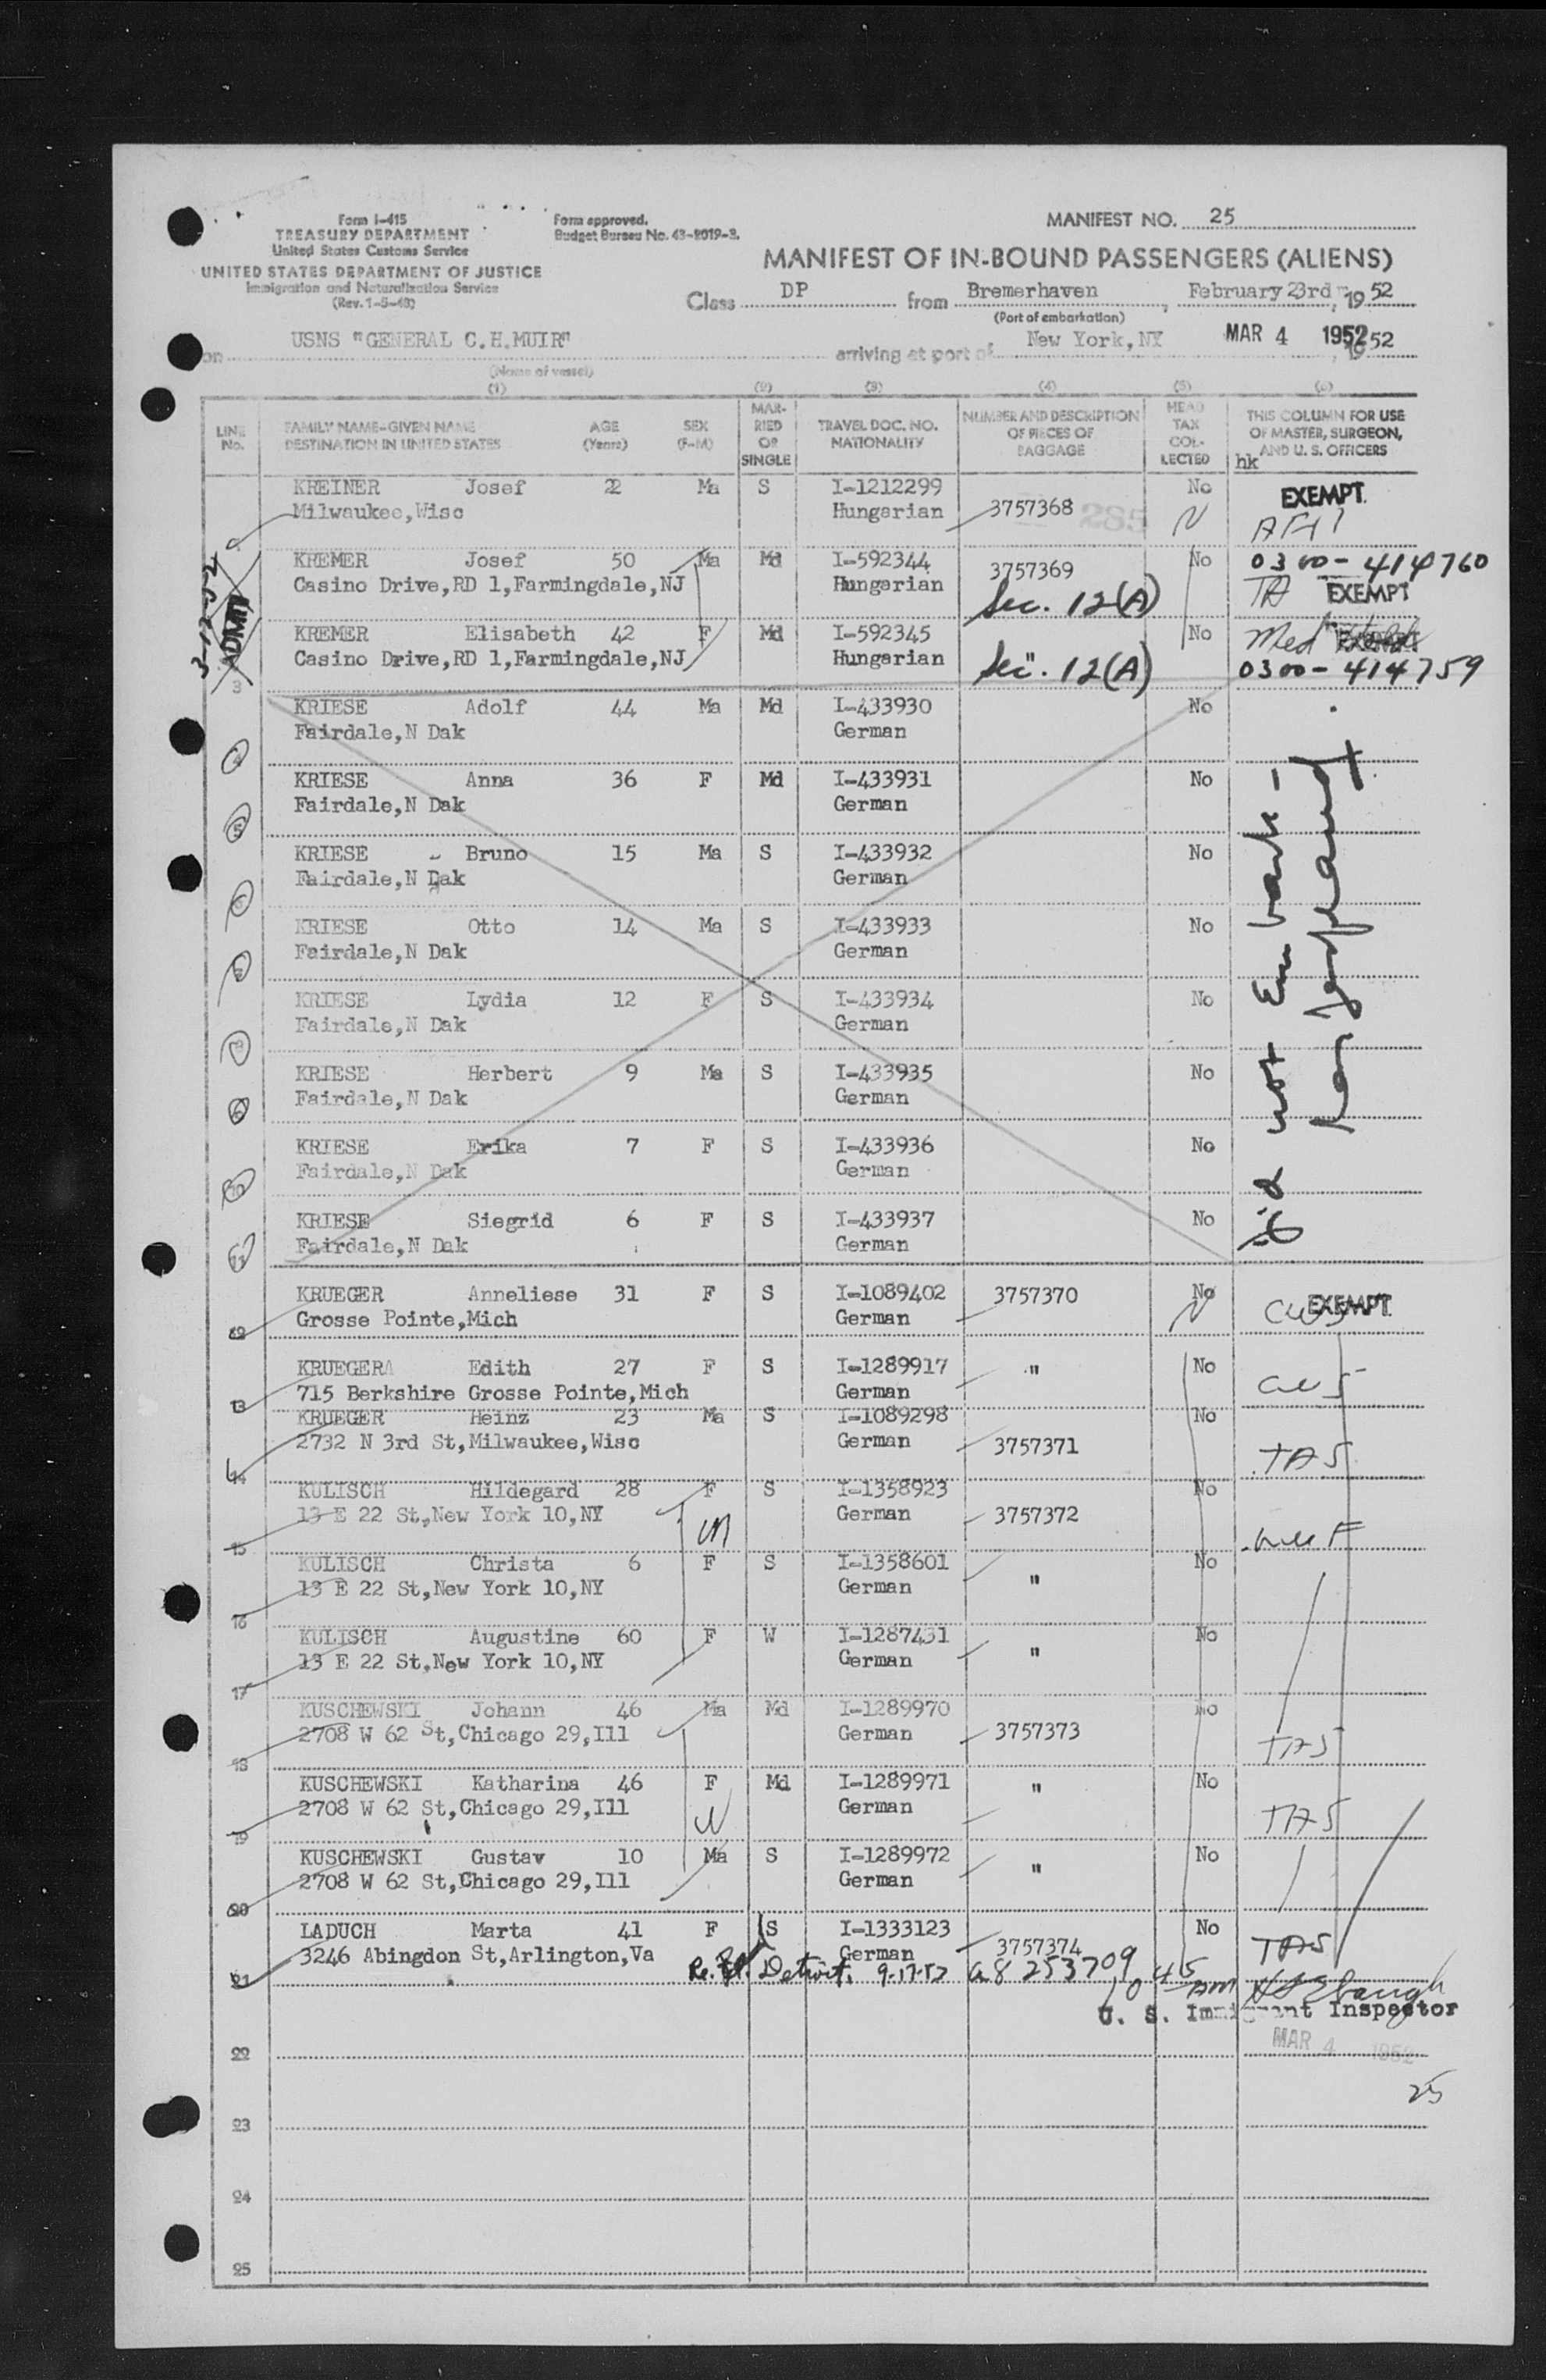 Form I-415
TREASURY DEPARTMENT
United States Customs Service
UNITED STATES DEPARTMENT OF JUSTICE
Immigration and Naturalization Service
(Rev. 1-5-48)
Form approved.
Budget Bureau No. 43-R019-3.
MANIFEST NO. 25
MANIFEST OF IN-BOUND PASSENGERS (ALIENS)
Class DP from Bremerhaven, February 23rd, 1952
(Port of embarkation)
on USNS "GENERAL C.H.MUIR" arriving at port of New York, NY MAR 4 1952 1952
(Name of vessel)
(1) (2) (3) (4) (5) (6)
LINE No. FAMILY NAME-GIVEN NAME DESTINATION IN UNITED STATES AGE (Years) SEX (F-M) MARRIED OR SINGLE TRAVEL DOC. NO. NATIONALITY NUMBER AND DESCRIPTION OF PIECES OF BAGGAGE HEAD TAX COLLECTED THIS COLUMN FOR USE OF MASTER, SURGEON, AND U. S. OFFICERS
hk
KREINER Josef 22 Ma S I-1212299 No EXEMPT
Milwaukee,Wisc Hungarian 3757368 285
KREMER Josef 50 Ma Md I-592344 3757369 No 0300-414760
Casino Drive,RD 1,Farmingdale,NJ Hungarian Sec. 12(A) TA EXEMPT
3-12-52 ADMIT
KREMER Elisabeth 42 F Md I-592345 " No Med EXEMPT
Casino Drive,RD 1,Farmingdale,NJ Hungarian Sec. 12(A) 0300-414759
3
KRIESE Adolf 44 Ma Md I-433930 No
Fairdale,N Dak German
4
KRIESE Anna 36 F Md I-433931 No
Fairdale,N Dak German
5
KRIESE Bruno 15 Ma S I-433932 No
Fairdale,N Dak German
6
KRIESE Otto 14 Ma S I-433933 No
Fairdale,N Dak German
7
KRIESE Lydia 12 F S I-433934 No
Fairdale,N Dak German
8
KRIESE Herbert 9 Ma S I-433935 No
Fairdale,N Dak German
9
KRIESE Erika 7 F S I-433936 No
Fairdale,N Dak German
10
KRIESE Siegrid 6 F S I-433937 No
Fairdale,N Dak German
11
Did not Embark -
KRUEGER Anneliese 31 F S I-1089402 3757370 No EXEMPT
Grosse Pointe,Mich German
12
KRUEGERA Edith 27 F S I-1289917 " No
715 Berkshire Grosse Pointe,Mich German
13
KRUEGER Heinz 23 Ma S I-1089298 No
2732 N 3rd St,Milwaukee,Wisc German 3757371 TAS
14
KULISCH Hildegard 28 F S I-1358923 No
13 E 22 St,New York 10,NY German 3757372
15
KULISCH Christa 6 F S I-1358601 No
13 E 22 St,New York 10,NY German "
16
KULISCH Augustine 60 F W I-1287431 No
13 E 22 St,New York 10,NY German "
17
KUSCHEWSKI Johann 46 Ma Md I-1289970 No
2708 W 62 St,Chicago 29,Ill German 3757373 TAS
18
KUSCHEWSKI Katharina 46 F Md I-1289971 " No
2708 W 62 St,Chicago 29,Ill German TAS
19
KUSCHEWSKI Gustav 10 Ma S I-1289972 No
2708 W 62 St,Chicago 29,Ill German "
20
LADUCH Marta 41 F S I-1333123 No
3246 Abingdon St,Arlington,Va German 3757374 TAS
21 Detroit, 9-17-57 a8 253709
U. S. Immigrant Inspector
MAR 4 1952
22
25
23
24
25